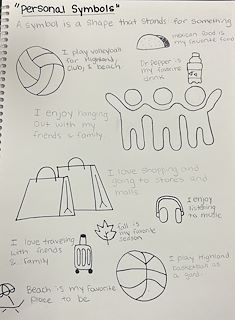 "Personal Symbols"
A symbol is a shape that stands for something
mexican food is
my favorite food
I play volleyball
for Highland,
club, & beach
Dr.Pepper is
my favorite
drink
I enjoy hanging
out with my
friends & family
I love shopping and
going to stores and
malls.
I enjoy
listening
to music
fall is
my favorite
season
I love traveling
with friends
& family
I play Highland
basketball as
a guard
Beach is my favorite
place to be